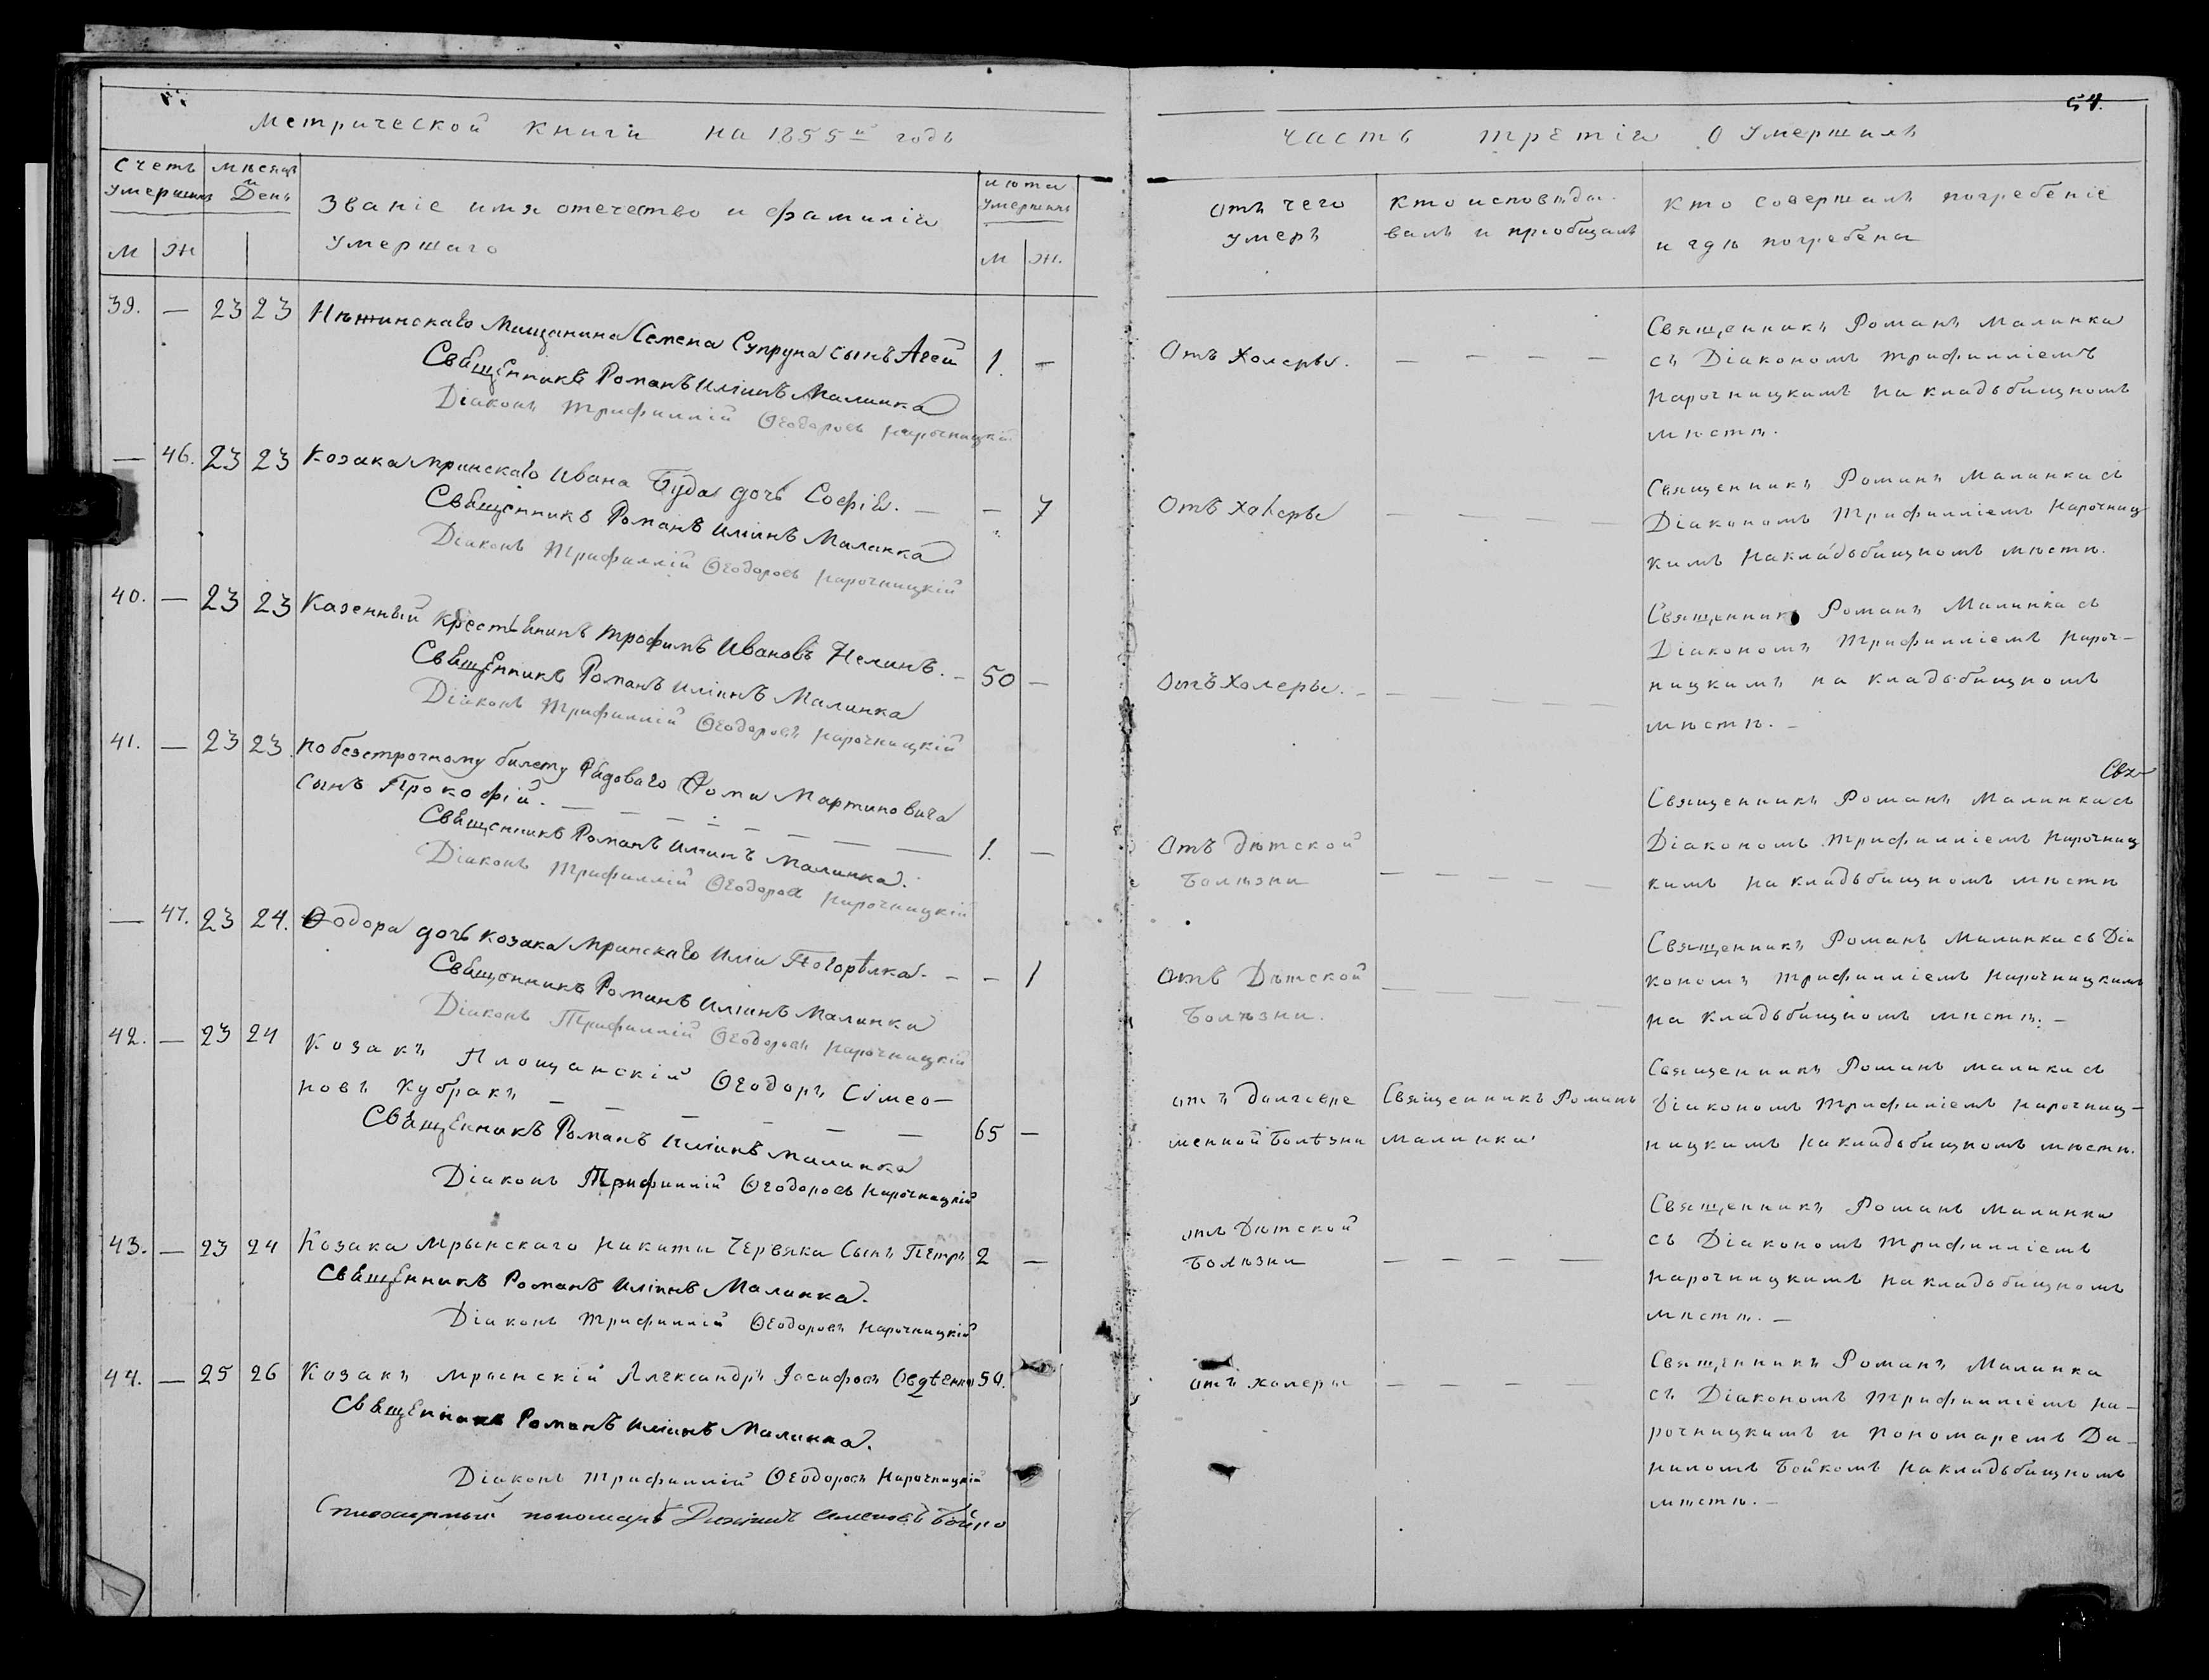 Метрической книги на 1855й годъ
Счетъ умершихъ
мѣсяцъ и День
Званіе имя отечество и фамилія
умершаго
лѣта умершихъ
М Ж М Ж.
39. — 23 23 Нѣжинскаго Мищанина Семена Супруна сынъ Агей 1. —
Священникъ Романъ Иліинъ Малинка
Діаконъ Трифиллій Ѳеодоровъ Нарочницкій
— 46. 23 23 Козака Мринскаго Ивана Буда дочь Софія. — — 7
Священникъ Романъ Иліинъ Малинка
Діаконъ Трифиллій Ѳеодоровъ Нарочницкій
40. — 23 23 Казенный крестянинъ Трофимъ Ивановъ Нелинъ. — 50 —
Священникъ Романъ Иліинъ Малинка
Діаконъ Трифиллій Ѳеодоровъ Нарочницкій
41. — 23 23. По безстрочному билету Рядоваго Ѳомы Мартиновича
сынъ Прокофій. — — — — — — — 1. —
Священникъ Романъ Иліинъ Малинка.
Діаконъ Трифиллій Ѳеодоровъ Нарочницкій
— 47. 23 24. Ѳодора дочь козака Мринскаго Иліи Погорѣлка. — — 1
Священникъ Романъ Иліинъ Малинка
Діаконъ Трифиллій Ѳеодоровъ Нарочницкій
42. — 23 24 Козакъ Площанскій Ѳеодоръ Сѵмео-
новъ Кубракъ — — — — — — 65 —
Священникъ Романъ Иліинъ Малинка
Діаконъ Трифиллій Ѳеодоровъ Нарочницкій
43. — 23 24 Козака Мрынскаго Никиты Червяка Сынъ Петръ 2 —
Священникъ Романъ Иліинъ Малинка.
Діаконъ Трифиллій Ѳеодоровъ Нарочницкій
44. — 25 26 Козакъ Мрынскій Александръ Іосифовъ Овдѣенко 54.
Священникъ Романъ Иліинъ Малинка.
Діаконъ Трифиллій Ѳеодоровъ Нарочницкій
пономарь Бойко
54.
Часть третія О Умершихъ
Отъ чего
умеръ
Кто исповѣды-
валъ и пріобщалъ
Кто совершалъ погребеніе
и гдѣ погребены
Отъ Холеры. — — — —
Священникъ Романъ Малинка
съ Діакономъ Трифилліемъ
Нарочницкимъ на кладьбищномъ
мѣстѣ.
Отъ Холеры — — — —
Священникъ Романъ Малинка съ
Діакономъ Трифилліемъ Нарочниц
кимъ на кладьбищномъ мѣстѣ.
Отъ Холеры. — — — — —
Священникъ Романъ Малинка съ
Діакономъ Трифилліемъ Нароч-
ницкимъ на кладьбищномъ
мѣстѣ. —
Свя-
Отъ дѣтской
Болѣзни — — — — —
Священникъ Романъ Малинка съ
Діакономъ Трифилліемъ Нарочниц
кимъ на кладьбищномъ мѣстѣ
Отъ Дѣтской
Болѣзни. — — — — —
Священникъ Романъ Малинка съ Діа
кономъ Трифилліемъ Нарочницкимъ
на кладьбищномъ мѣстѣ. —
отъ долговре
менной болѣзни
Священникъ Романъ
Малинка.
Священникъ Романъ Малика съ
Діакономъ Трифиліемъ Нарочниц-
ницкимъ на кладьбищномъ мѣстѣ.
отъ Дѣтской
Болѣзни — — — —
Священникъ Романъ Малинка
съ Діакономъ Трифилліемъ
Нарочницкимъ на кладьбищномъ
мѣстѣ. —
отъ холеры — — — —
Священникъ Романъ Малинка
съ Діакономъ Трифилліемъ На-
рочницкимъ и Пономаремъ Да-
ниломъ Бойкомъ на кладьбищномъ
мѣстѣ. —